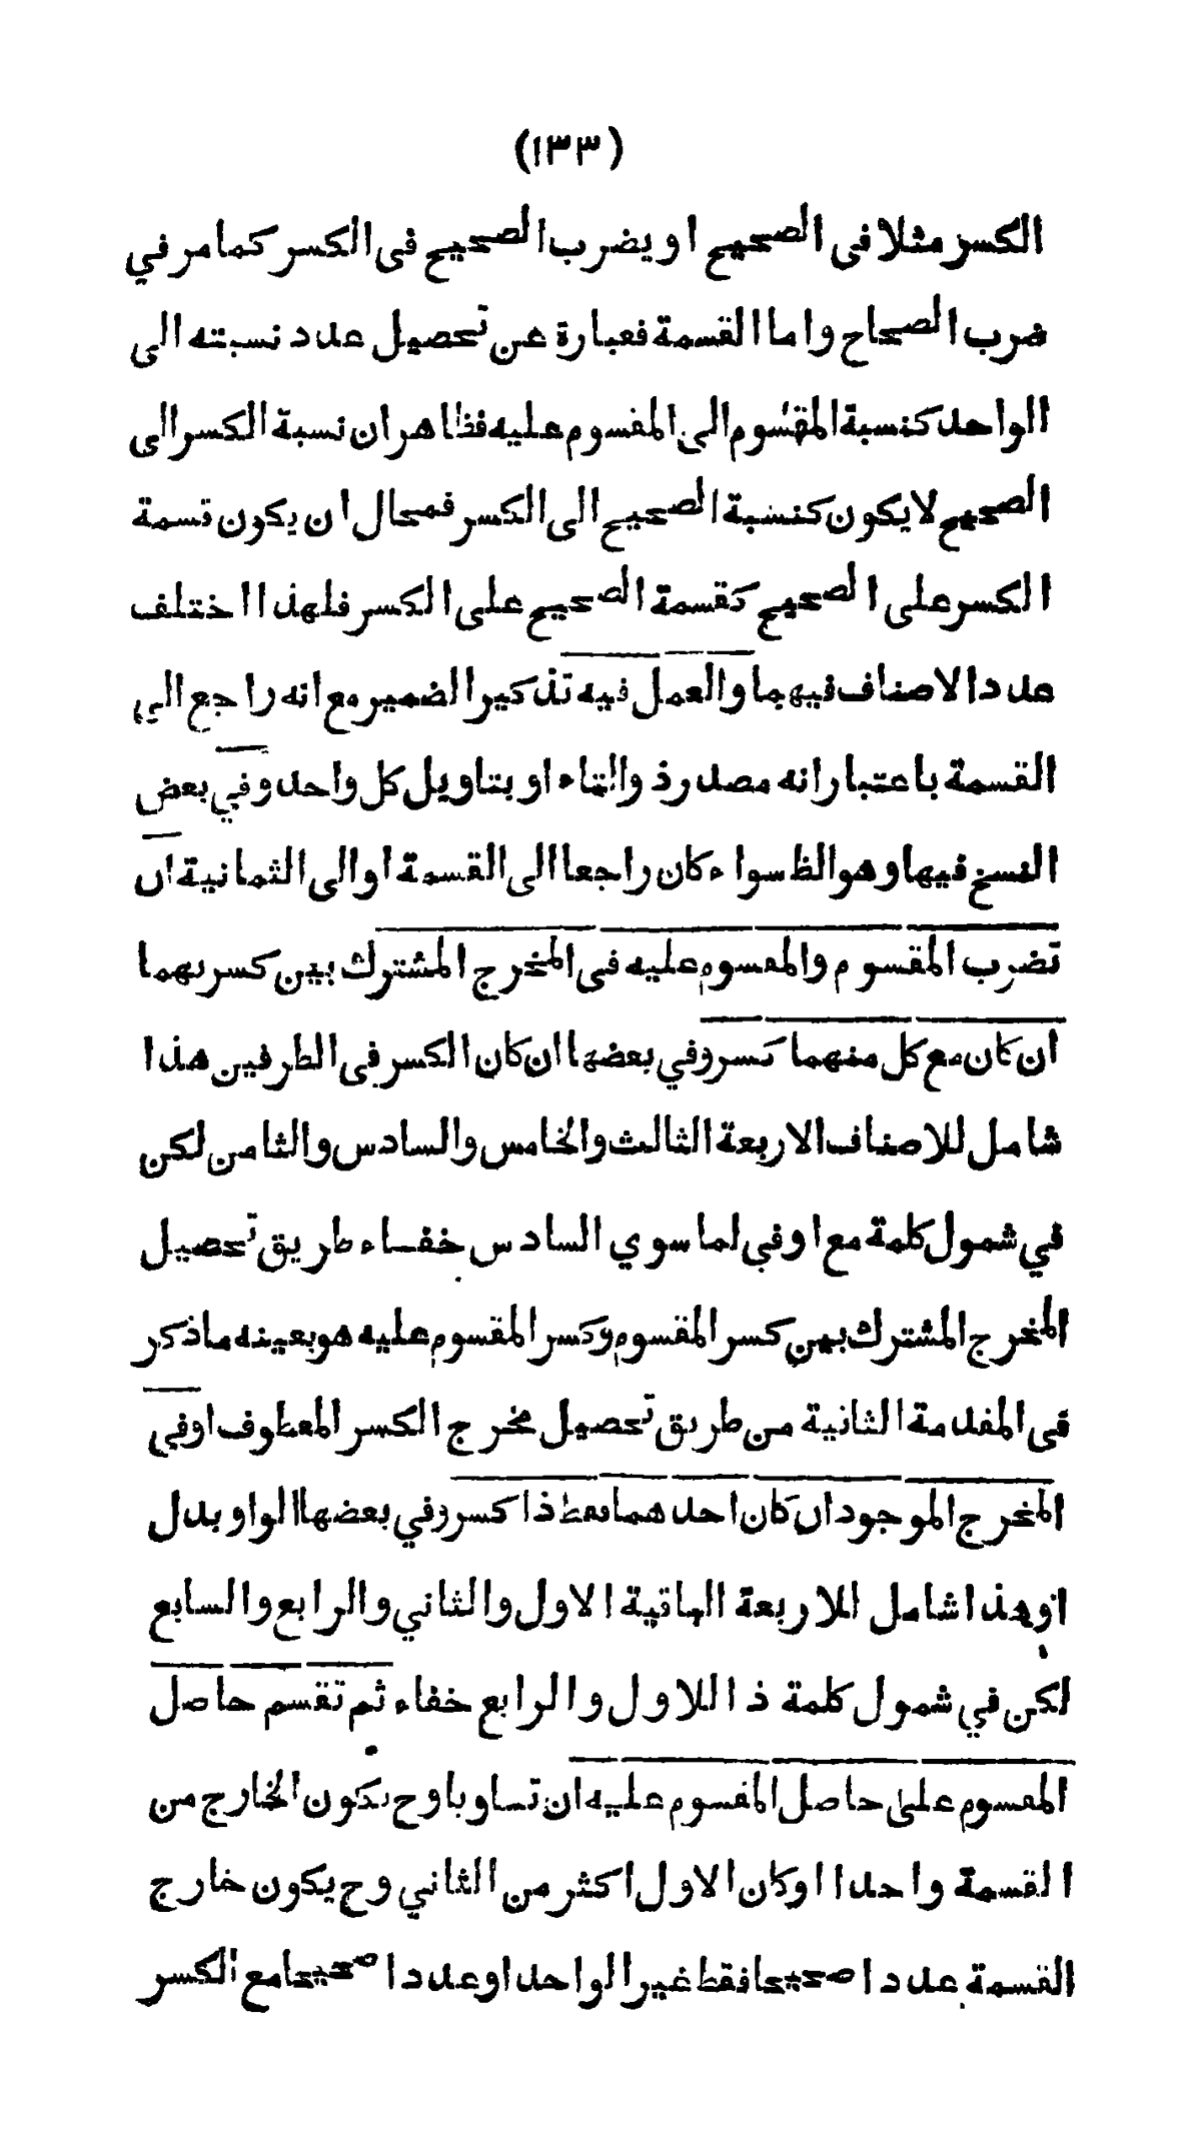 (١٣٣)
الكسر مثلا فى الصحيح او يضرب الصحيح فى الكسر كما مر في
ضرب الصحاح واما القسمة فعبارة عن تحصيل عدد نسبته الى
الواحد كنسبة المقسوم الى المقسوم عليه فظاهر ان نسبة الكسر الى
الصحيح لا يكون كنسبة الصحيح الى الكسر فمحال ان يكون قسمة
الكسر على الصحيح كقسمة الصحيح على الكسر فلهذا اختلف
عدد الاصناف فيهما والعمل فيه تذكير الضمير مع انه راجع الى
القسمة باعتبار انه مصدر ذو التاء او بتاويل كل واحد وفي بعض
النسخ فيها وهو الظ سواء كان راجعا الى القسمة او الى الثمانية ان
تضرب المقسوم والمقسوم عليه فى المخرج المشترك بين كسريهما
ان كان مع كل منهما كسر وفي بعضها ان كان الكسر فى الطرفين هذا
شامل للاصناف الاربعة الثالث والخامس والسادس والثامن لكن
في شمول كلمة مع او فى لما سوي السادس خفاء طريق تحصيل
المخرج المشترك بين كسر المقسوم وكسر المقسوم عليه هو بعينه ما ذكر
فى المقدمة الثانية من طريق تحصيل مخرج الكسر المعطوف او في
المخرج الموجود ان كان احدهما فقط ذا كسر وفي بعضها الواو بدل
او وهذا شامل للاربعة الباقية الاول والثاني والرابع والسابع
لكن في شمول كلمة ذا للاول والرابع خفاء ثم تقسم حاصل
المقسوم على حاصل المقسوم عليه ان تساويا وح يكون الخارج من
القسمة واحدا او كان الاول اكثر من الثاني وح يكون خارج
القسمة عددا صحيحا فقط غير الواحد او عددا صحيحا مع الكسر